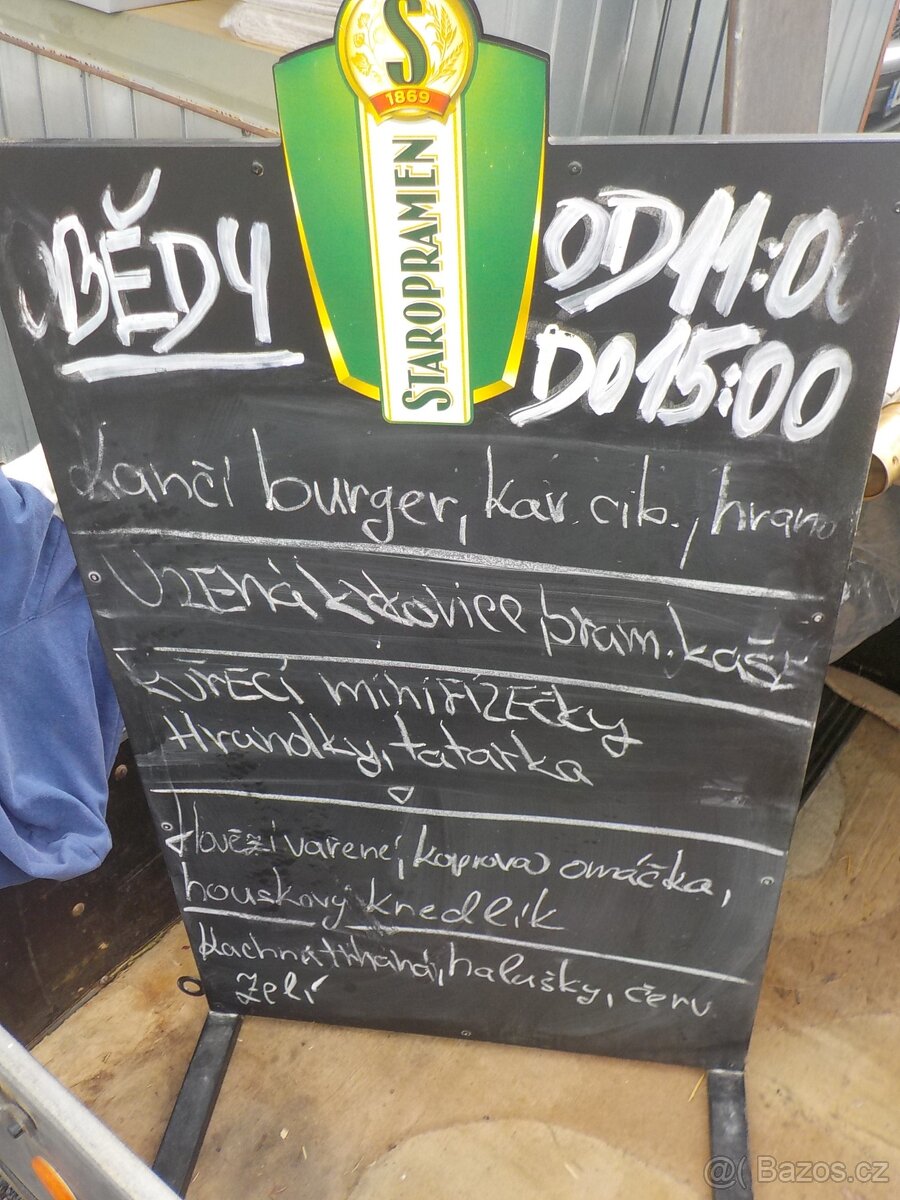 S
1869
STAROPRAMEN
OBĚDY
OD 11:00
DO 15:00
Kančí burger, kar. cib., hrano
UZENÁ krkovice, bram. kaše
KUŘECÍ miniŘÍZEČky
Hranolky, tatarka
Hovězí vařené, koprová omáčka,
houskový knedlík
Kachna trhaná, halušky, červ
zelí
@( Bazos.cz